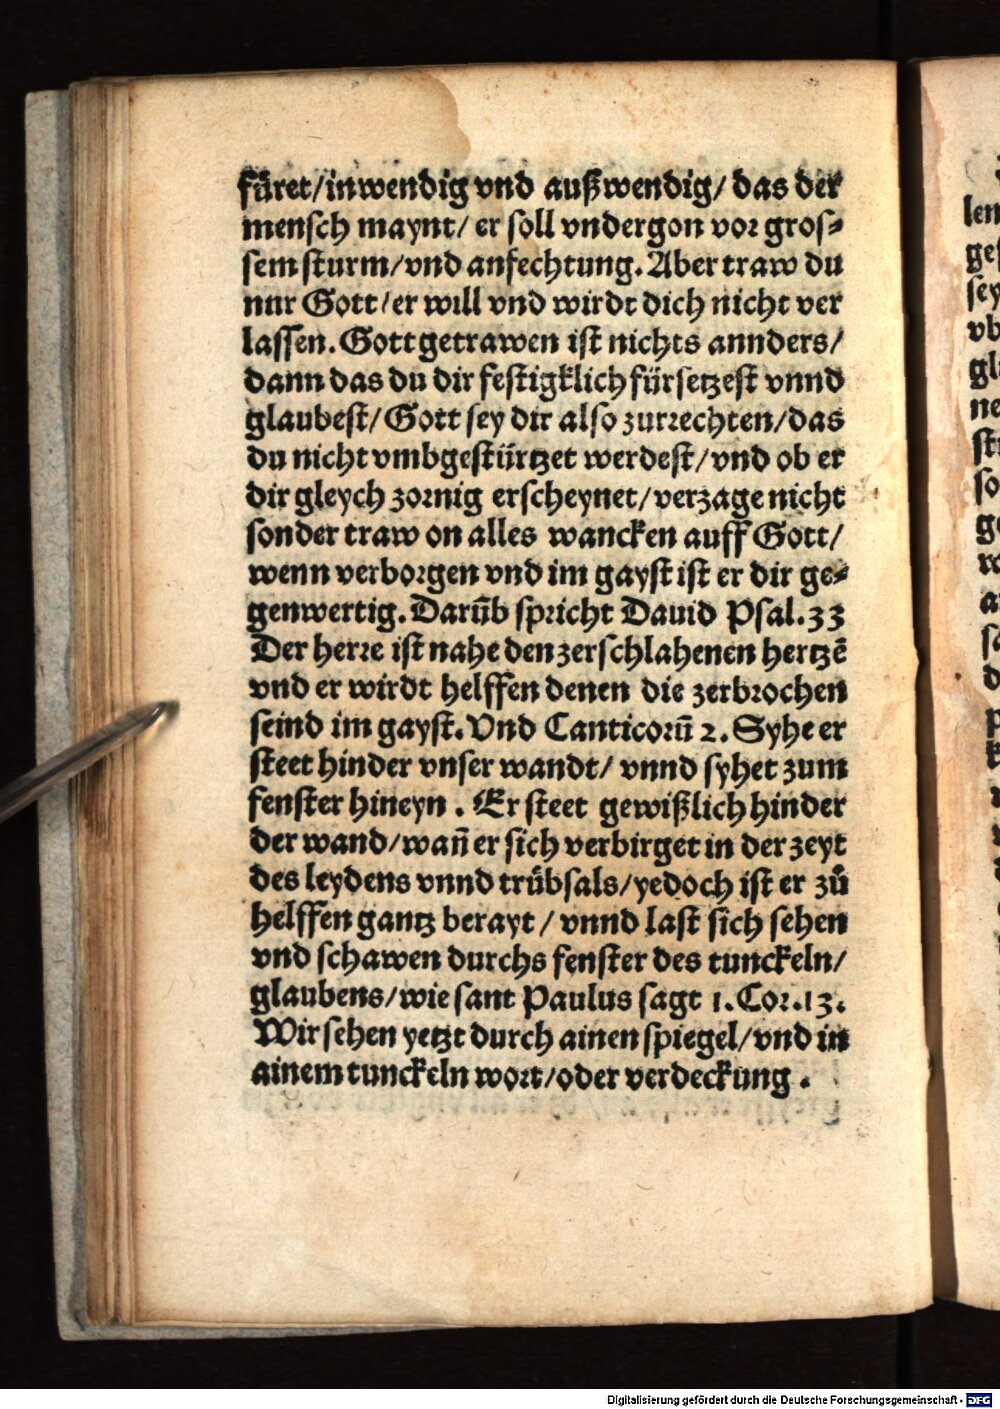 füret/inwendig vnd außwendig/ das der
mensch maynt/ er soll vndergon vor gros⸗
sem sturm/vnd anfechtung. Aber traw du
nur Gott/er will vnd wirdt dich nicht ver
lassen. Gott getrawen ist nichts annders/
dann das du dir festigklich fürsetzest vnnd
glaubest/ Gott sey dir also zurrechten/das
du nicht vmbgestürtzet werdest/vnd ob er
dir gleych zornig erscheynet/verzage nicht
sonder traw on alles wancken auff Gott/
wenn verborgen vnd im gayst ist er dir ge⸗
genwertig. Darũb spricht Dauid Psal.33
Der herre ist nahe den zerschlahenen hertzẽ
vnd er wirdt helffen denen die zerbrochen
seind im gayst. Vnd Canticorũ 2. Syhe er
steet hinder vnser wandt/ vnnd syhet zum
fenster hineyn . Er steet gewißlich hinder
der wand/wañ er sich verbirget in der zeyt
des leydens vnnd trübsals/yedoch ist er zů
helffen gantz berayt / vnnd last sich sehen
vnd schawen durchs fenster des tunckeln/
glaubens/wie sant Paulus sagt 1. Cor.13.
Wir sehen yetzt durch ainen spiegel/vnd in
ainem tunckeln wort/oder verdeckung .
len
ges
sey
vb
gl
ne
st
so
Digitalisierung gefördert durch die Deutsche Forschungsgemeinschaft - DFG